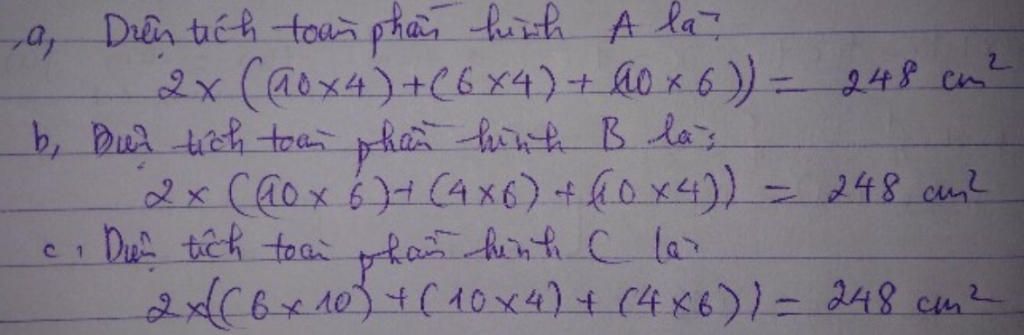 a, Diện tích toàn phần hình A là:
2 x ((10 x 4) + (6 x 4) + (10 x 6)) = 248 cm²
b, Diện tích toàn phần hình B là:
2 x ((10 x 6) + (4 x 6) + (10 x 4)) = 248 cm²
c, Diện tích toàn phần hình C là:
2 x ((6 x 10) + (10 x 4) + (4 x 6)) = 248 cm²